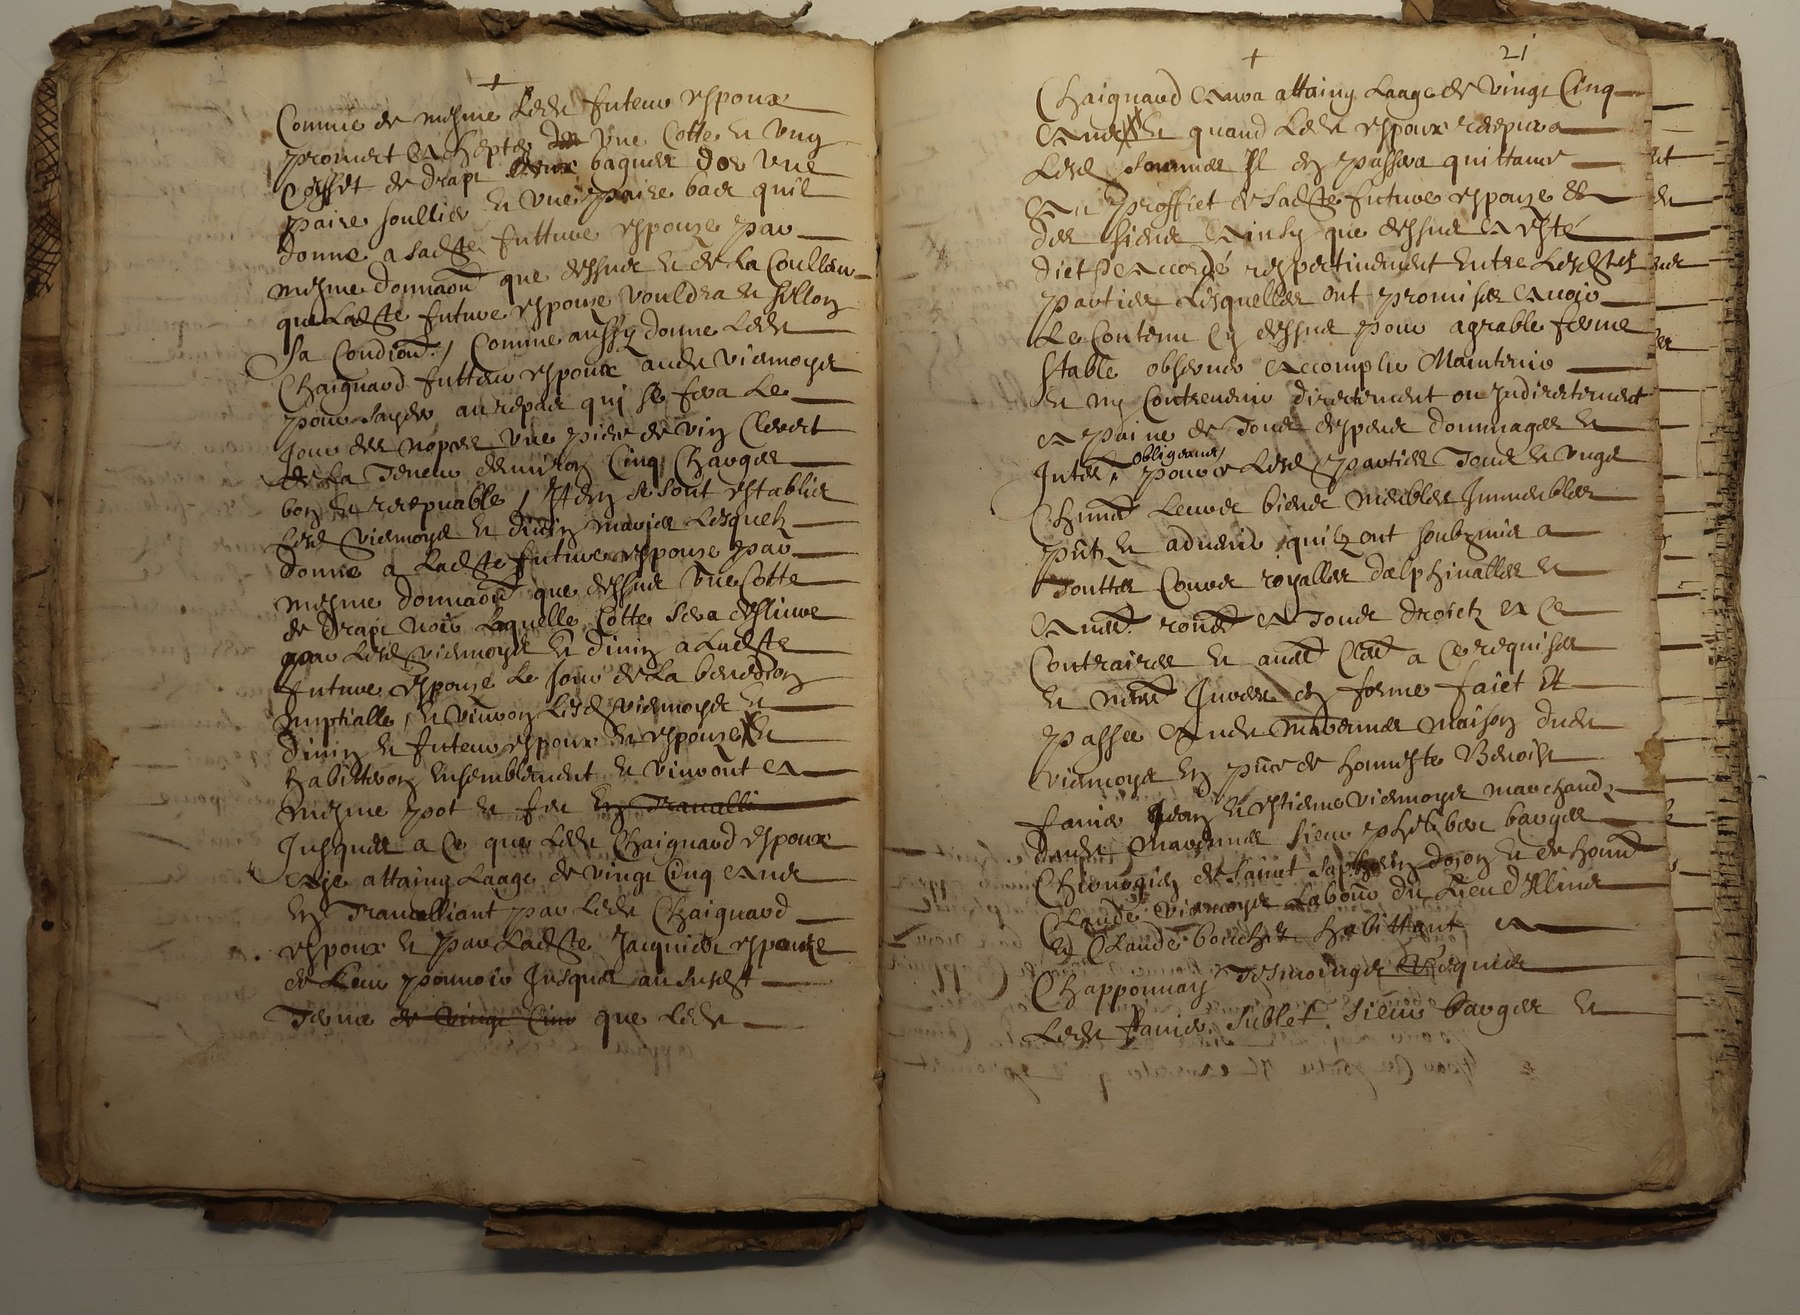 +
Comme de mesme Ledt futeur espoux
promect achepter une Cotte et ung
Corset de drapt deux bagues dor une
paire soulliers et une paire bas quil
donne a sadte futture espouze par
mesme donnaon que dessus et de La Coulleur
que Ladte future espouze vouldra et sellon
sa Condion / Comme aussy donne Ledt
Chaignard futteur espoux audt viermoyes
pour ayder au repas qui se fera Le
Jour des nopces une piece de vin Cleret
de La Teneur denviron Cinq Charges
bon et recepvable / Item se sont establis
Lesd viermoyes et divin maries Lesquelz
donne a Ladte future espouze par
mesme donnaon que dessus une Cotte
de drapt noir Laquelle Cotte sera deslivre
par Lesd viermoyes et divin a Ladte
future espouze Le Jour de La benedion
nuptialle / et vivron Lesd viermoyes et
divin et futeur espoux et espouze et
habitteron ensemblement et vivront a
mesme pot et feu en Travalli
Jusques a Ce que Ledt Chaignard espoux
aye attaing Laage de vingt Cinq ans
en Travalliant par Ledt Chaignard
espoux et par Ladte Jacquier espouze
de Leur pouvoir Jusques au susdt
Terme de vingt Cinq que Ledt
+
21
Chaignard aura attaing Laage de vingt Cinq
ans et quand Ledt espoux recepvra
Lesd sommes Il en passera quittance
au proffict de sadte future espouze &
des siens Ainsy que dessus a esté
dict et accordé respectivement entre Lesdtes
parties Lesquelles ont promises avoir
Le Contenu Cy dessus pour agreable ferme
stable observer accomplir Maintenir
et ny Contrevenir directement ou Indirectement
a paine de Tous despens dommages et
Intes obligeans pource Lesd parties Tous et ungs
Chunes Leurs biens meubles Immeubles
pntz et advenir quilz ont soubzmis a
Touttes Cours royalles dalphinalles et
auec a Tous droictz a Ce
Contraires et a Ce requises
et en forme faict et
passé audt marennes maison dudt
viermoyes en pnce de honneste Benoist
favier Jean et estienne viermoyes marchandz
dudt marennes sieur phelibert barges
Chirurgien de Saint saphorin dozon et de honn
Claude viermoyes Labour du Lieu dillins
et Claude bouchet habittant a
Chapponnay Tesmoinges requis
Ledt favier sublet sieur barges et